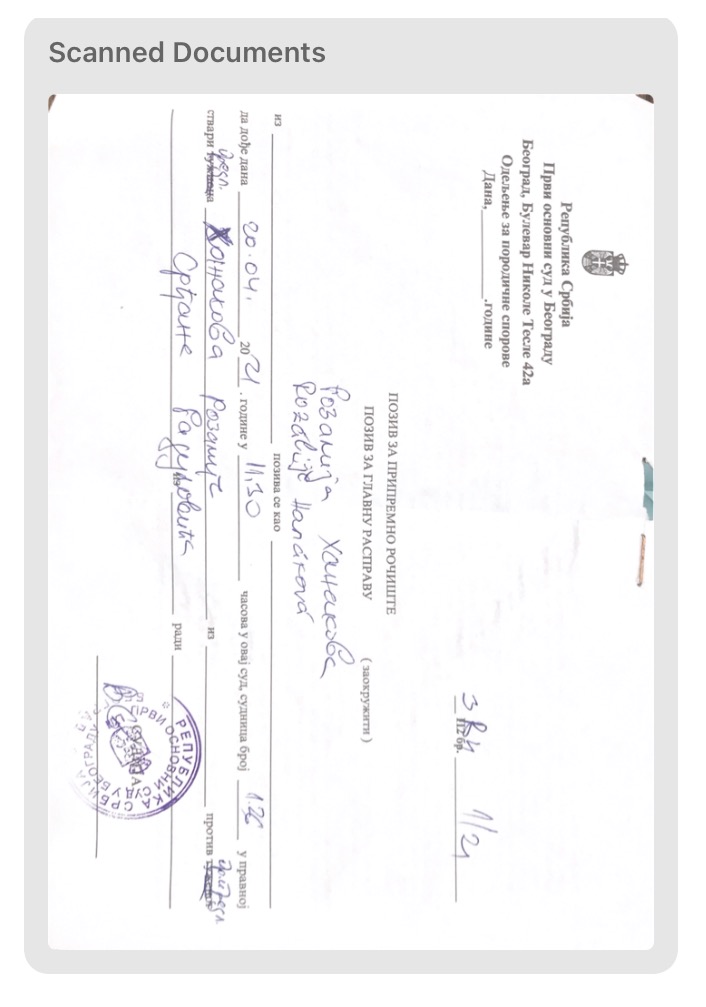 Scanned Documents
Република Србија
Први основни суд у Београду
Београд, Булевар Николе Тесле 42а
Одељење за породичне спорове
Дана, ____________.године
3 1/21
П2 бр.
ПОЗИВ ЗА ПРИПРЕМНО РОЧИШТЕ
ПОЗИВ ЗА ГЛАВНУ РАСПРАВУ ( заокружити )
Розалија Ханакова
Rozálije Hanáková
из ____________ позива се као ____________
да дође дана 20.04. 20 21 . године у 11,30 часова у овај суд, судница број 1.26 у правној
предл. противпредл.
ствари Ханакова Розалије из ____________ против
Срђане Радуловића ради
РЕПУБЛИКА СРБИЈА
ПРВИ ОСНОВНИ СУД У БЕОГРАДУ